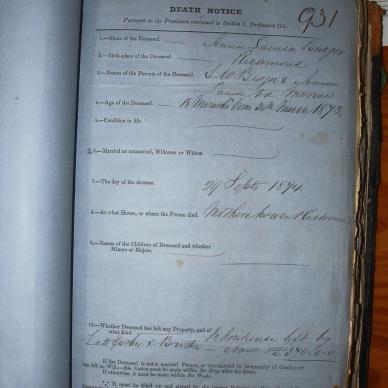 DEATH NOTICE.
931
Pursuant to the Provisions contained in Section 9, Ordinance 104.
1.—Name of the Deceased. Anna Louisa Burger
2.—Birth-place of the Deceased. Richmond
3.—Names of the Parents of the Deceased. & Anna
4.—Age of the Deceased. 18 Months born March 1873.
5.—Condition in life.
6.—Married or unmarried, Widower or Widow.
7.—The day of the decease. 29 Septr 1874.
8.—At what House, or where the Person died. Mothers house Richmond
9.—Names of the Children of Deceased and whether
Minors or Majors.
10.—Whether Deceased has left any Property, and of
what kind. Inheritance left by
Late father & Brother about £
If the Deceased is not a married Person, or not married in community of Goods
has left no Will,—this Notice must be made within Six Days after the death.
If otherwise, it must be made within Six Weeks.